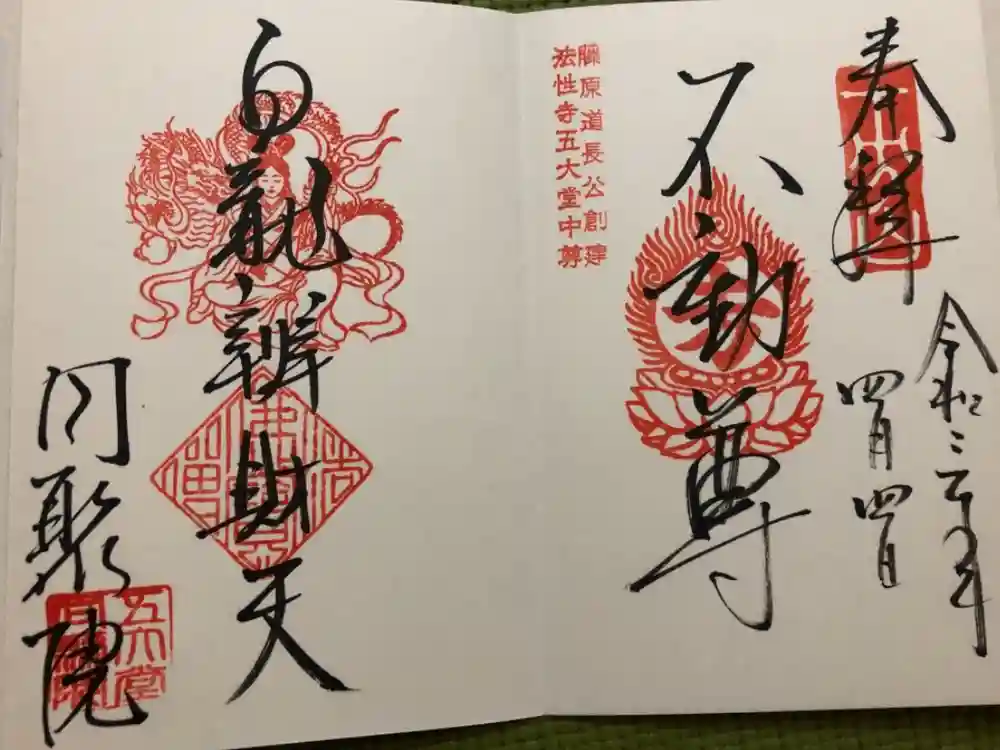 奉拝
令和二年
四月四日
不動尊
藤原道長公創建
法性寺五大堂中尊
白龍辨財天
同聚院
五大堂